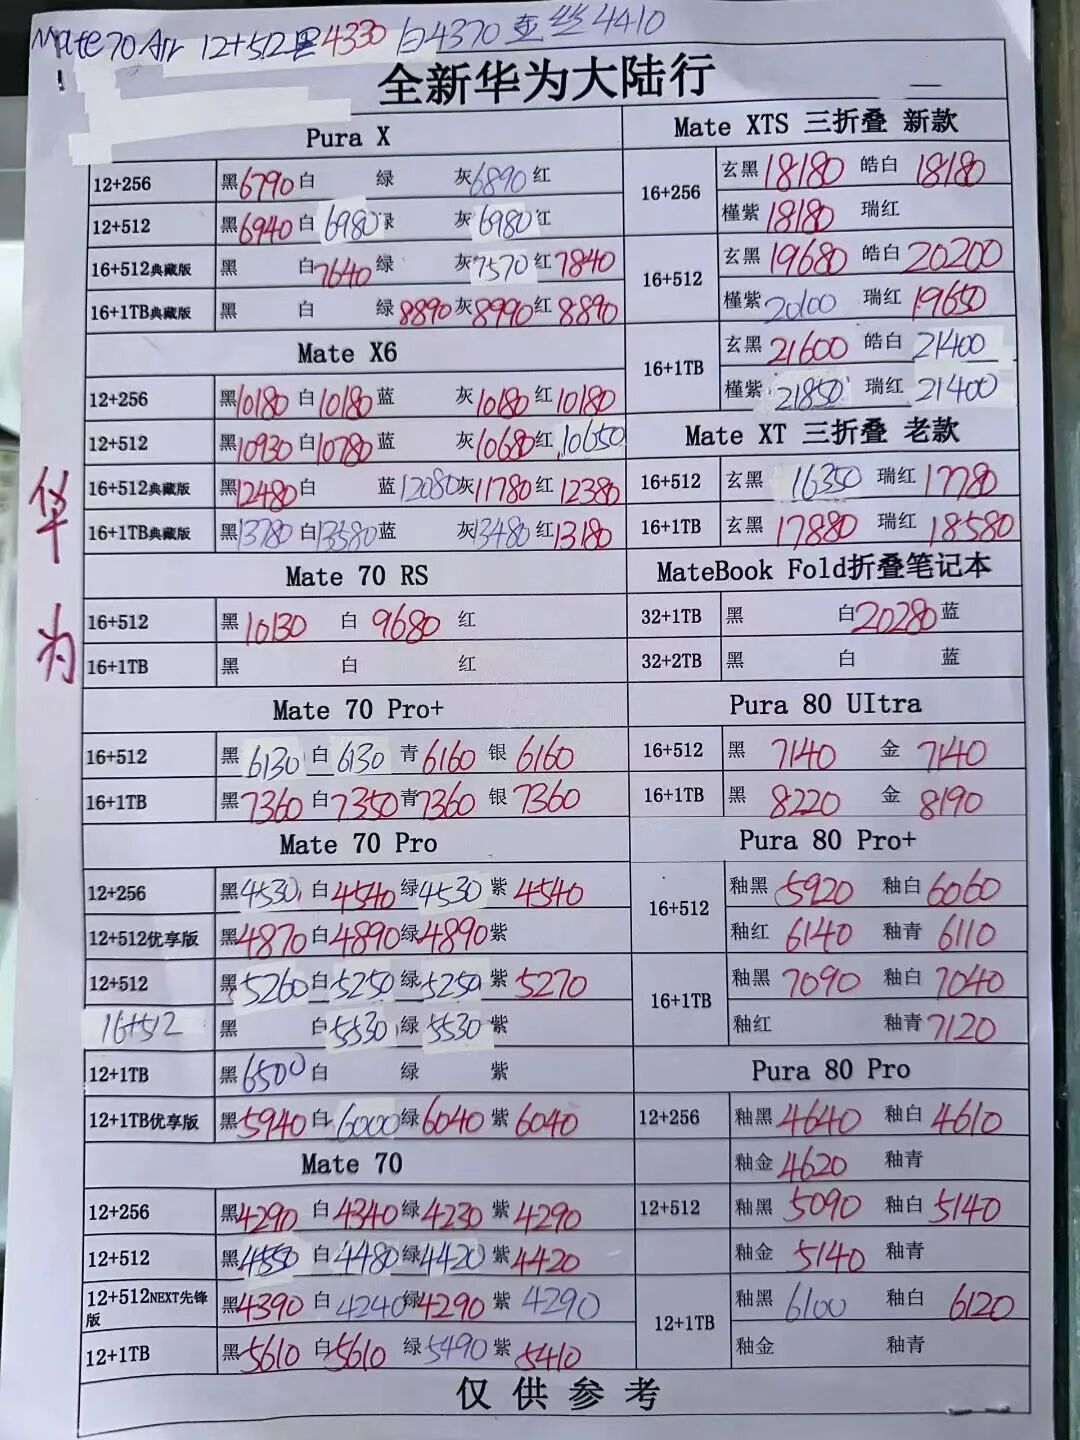 Mate 70 Air 12+512黑4330 白4370 金丝4410
全新华为大陆行
华为
Pura X
12+256 黑6790 白 绿 灰6890 红
12+512 黑6940 白6980 绿 灰6980 红
16+512典藏版 黑 白7640 绿 灰7570 红7840
16+1TB典藏版 黑 白 绿8890 灰8990 红8890
Mate X6
12+256 黑10180 白10180 蓝 灰10180 红10180
12+512 黑10930 白10780 蓝 灰10680 红10650
16+512典藏版 黑12480 白 蓝12080 灰11780 红12380
16+1TB典藏版 黑13780 白13580 蓝 灰13480 红13180
Mate 70 RS
16+512 黑10130 白9680 红
16+1TB 黑 白 红
Mate 70 Pro+
16+512 黑6130 白6130 青6160 银6160
16+1TB 黑7360 白7350 青7360 银7360
Mate 70 Pro
12+256 黑4530 白4540 绿4530 紫4540
12+512优享版 黑4870 白4890 绿4890 紫
12+512 黑5260 白5250 绿5250 紫5270
16+512 黑 白5530 绿5530 紫
12+1TB 黑6500 白 绿 紫
12+1TB优享版 黑5940 白6000 绿6040 紫6040
Mate 70
12+256 黑4290 白4340 绿4230 紫4290
12+512 黑4550 白4480 绿4420 紫4420
12+512NEXT先锋版 黑4390 白4240 绿4290 紫4290
12+1TB 黑5610 白5610 绿5490 紫5410
Mate XTS 三折叠 新款
16+256 玄黑18180 皓白18180
槿紫18180 瑞红
16+512 玄黑19680 皓白20200
槿紫20100 瑞红19650
16+1TB 玄黑21600 皓白21400
槿紫21850 瑞红21400
Mate XT 三折叠 老款
16+512 玄黑16350 瑞红17780
16+1TB 玄黑17880 瑞红18580
MateBook Fold折叠笔记本
32+1TB 黑 白20280 蓝
32+2TB 黑 白 蓝
Pura 80 UItra
16+512 黑7140 金7140
16+1TB 黑8220 金8190
Pura 80 Pro+
16+512 釉黑5920 釉白6060
釉红6140 釉青6110
16+1TB 釉黑7090 釉白7040
釉红 釉青7120
Pura 80 Pro
12+256 釉黑4640 釉白4610
釉金4620 釉青
12+512 釉黑5090 釉白5140
釉金5140 釉青
12+1TB 釉黑6100 釉白6120
釉金 釉青
仅供参考